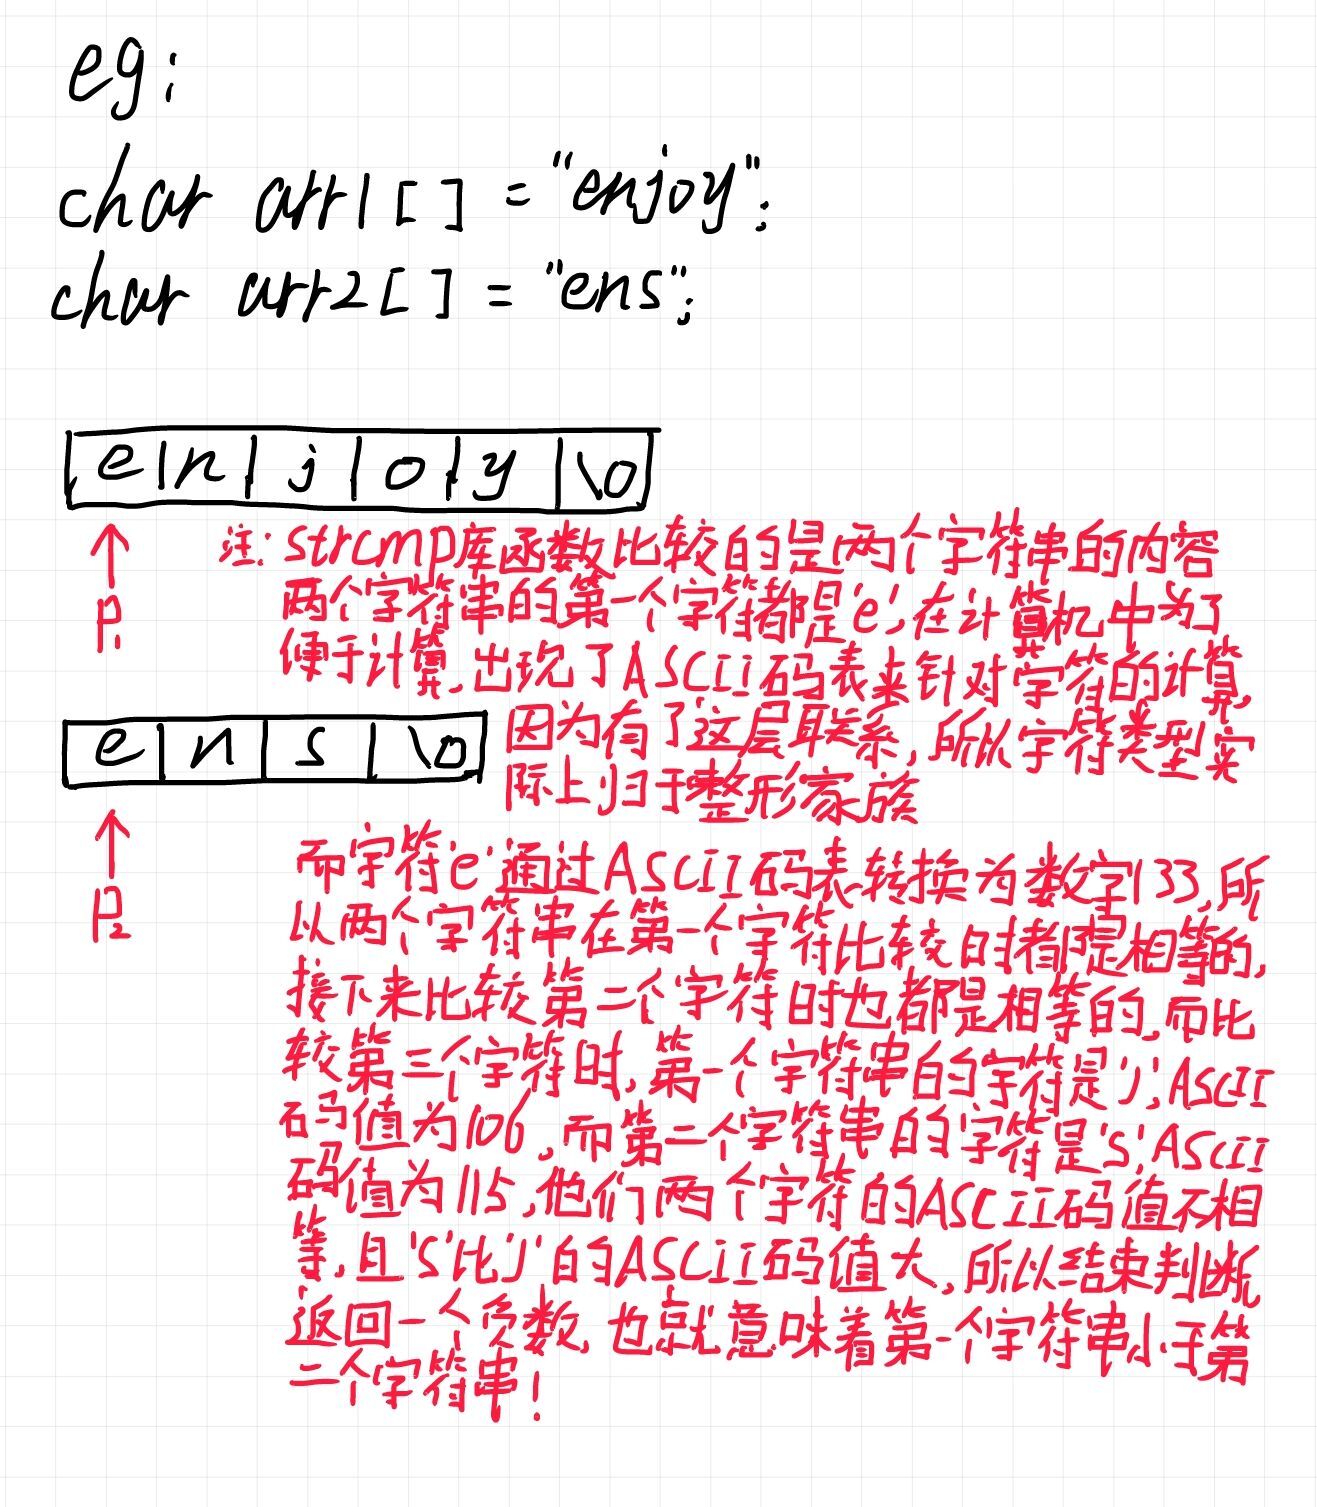 eg:
char arr1[] = "enjoy";
char arr2[] = "ens";
e n j o y \0
注: strcmp库函数比较的是两个字符串的内容
P1
两个字符串的第一个字符都是'e',在计算机中为了
便于计算,出现了ASCII码表来针对字符的计算,
e n s \0
因为有了这层联系,所以字符类型实
际上归于整形家族
P2
而字符'e'通过ASCII码表转换为数字133,所
以两个字符串在第一个字符比较时都是相等的,
接下来比较第二个字符时也都是相等的,而比
较第三个字符时,第一个字符串的字符是'j',ASCII
码值为106,而第二个字符串的字符是's',ASCII
码值为115,他们两个字符的ASCII码值不相
等,且's'比'j'的ASCII码值大,所以结束判断,
返回一个负数,也就意味着第一个字符串小于第
二个字符串!